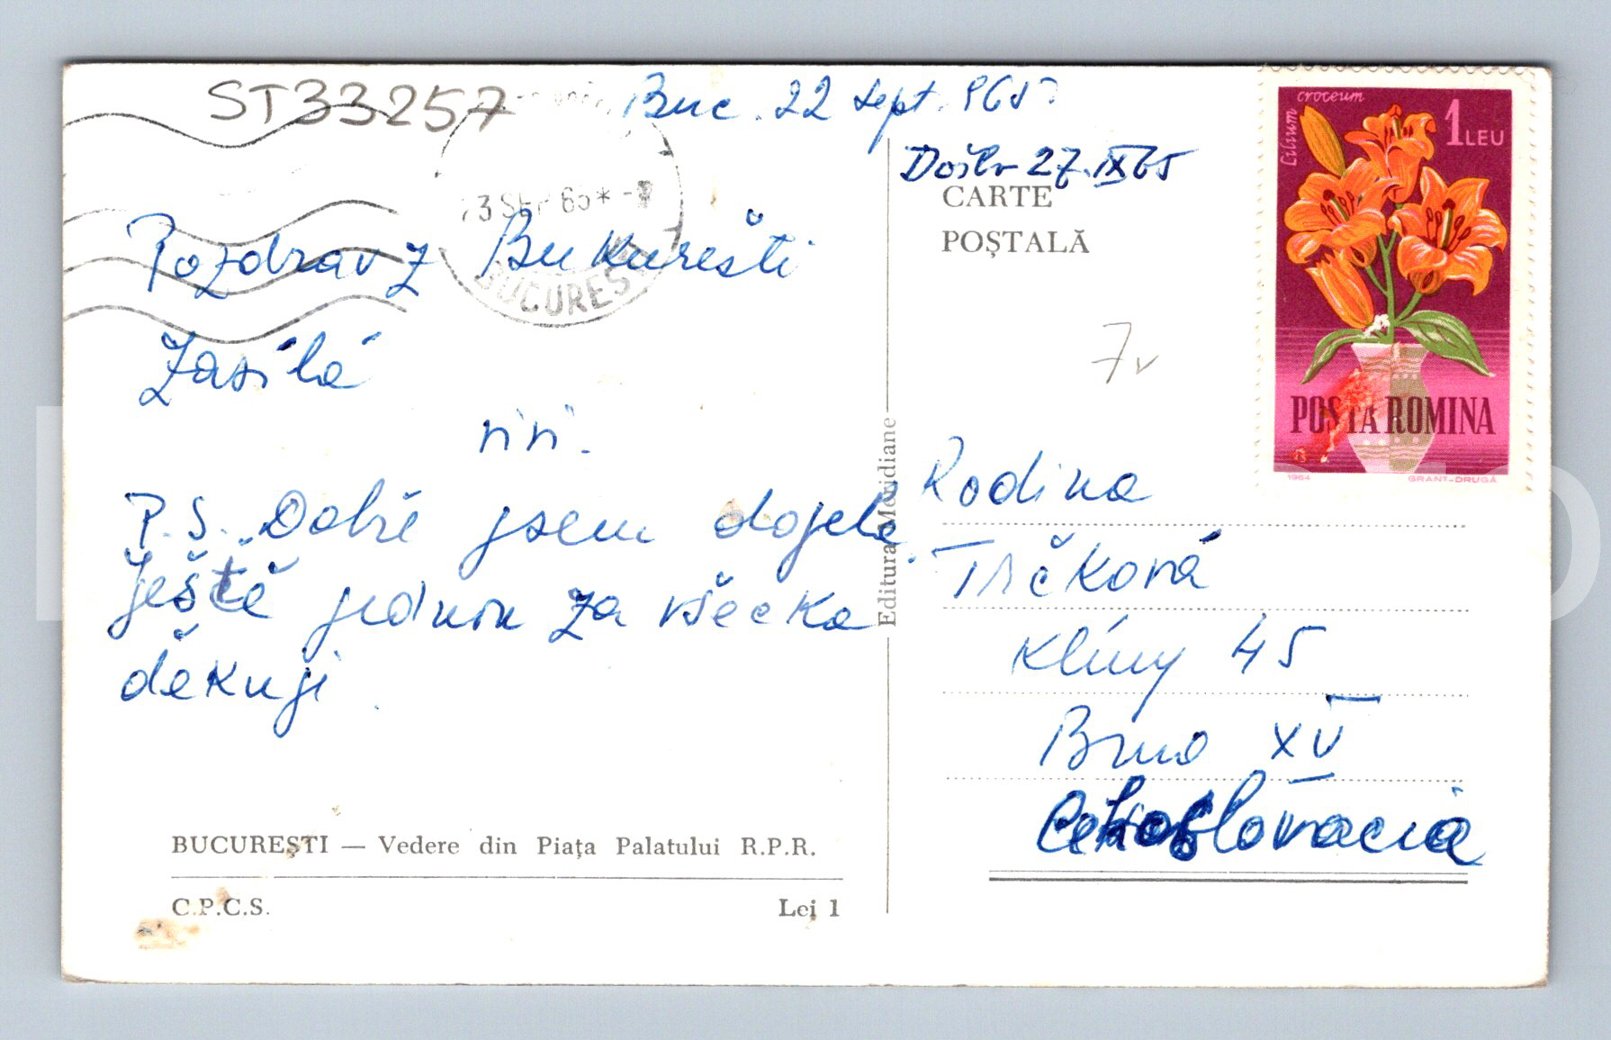 ST33257
Buc. 22 sept. 1965
Došlo 27.IX65
CARTE
POȘTALĂ
3 SEP 65 * -
BUCUREȘ
Lilium croceum
1 LEU
POSTA ROMINA
1964
GRANT-DRUGĂ
Pozdrav z Bukurešti
Zasílá
P.S. Dobře jsem dojela
Ještě jednou za všecko
děkuji
7v
Rodina
Trčková
Klíny 45
Brno XV
Cekoslovacia
Editura Meridiane
BUCUREȘTI — Vedere din Piața Palatului R.P.R.
C.P.C.S.
Lei 1